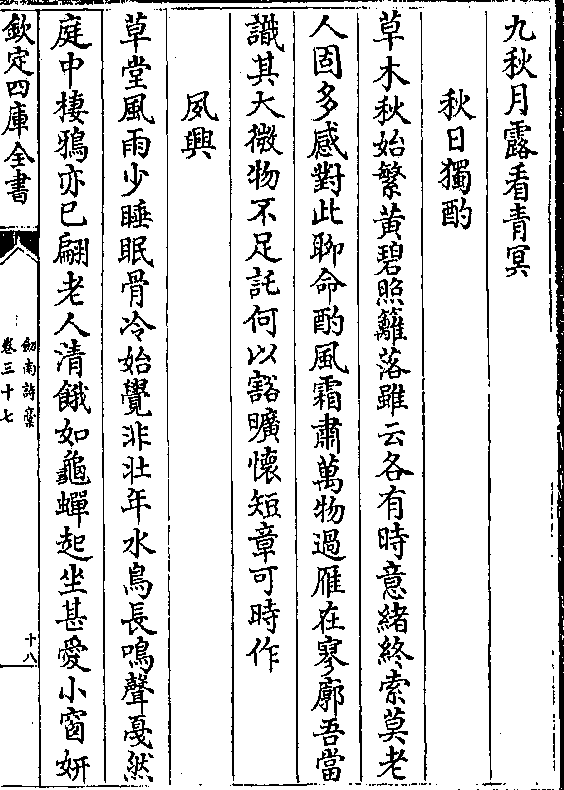 九秋月露看青冥
秋日獨酌
草木秋始繁黃碧照籬落雖云各有時意緒終索莫老
人固多感對此聊命酌風霜肅萬物過雁在寥廓吾當
識其大微物不足託何以豁曠懷短章可時作
夙興
草堂風雨少睡眠骨冷始覺非壯年水鳥長鳴聲戛然
庭中棲鴉亦已翩老人清餓如龜蟬起坐甚愛小窗妍
欽定四庫全書
劒南詩稾
卷三十七
十八